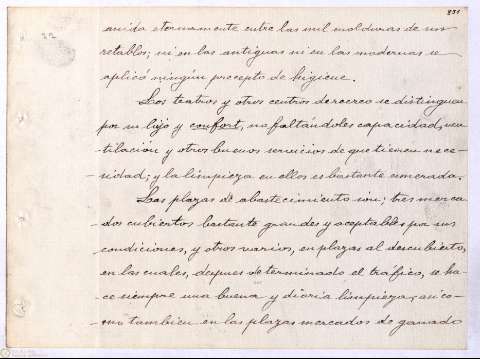 831
22
anida eternamente entre las mil molduras de sus
retablos; ni en las antiguas ni en las modernas se
aplicó ningún precepto de higiene.
Los teatros y otros centros de recreo se distinguen
por su lujo y confort, no faltándoles capacidad, ven-
tilación y otros buenos servicios de que tienen nece-
-sidad; y la limpieza en ellos es bastante esmerada.
Las plazas de abastecimiento son; tres merca-
dos cubiertos bastante grandes y aceptables por sus
condiciones, y otros varios, en plazas al descubierto,
en las cuales, despues de terminado el tráfico, se ha-
-ce siempre una buena y diaria limpieza; asi co-
-mo tambien en las plazas mercados de ganado